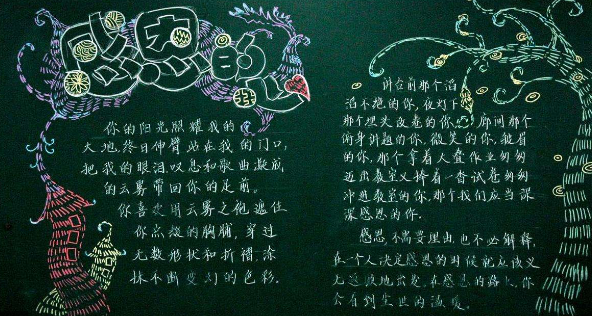 你的阳光照耀我的
大地,终日伸臂站在我的门口,
把我的眼泪、叹息和歌曲凝成
的云雾带回你的足前。
你喜爱用云雾之袍遮住
你点缀的胸脯,穿过
无数形状和折褶,涂
抹不断变幻的色彩.
讲台前那个滔
滔不绝的你,夜灯下
那个埋头改卷的你,廊间那个
俯身讲题的你,微笑的你,皱眉
的你,那个拿着人查作业匆匆
近出教室又捧着一沓试卷匆匆
冲进教室的你,那个我们应当深
深感恩的你.
感恩,不需要理由,也不必解释,
在一个人决定感恩的时候就应该义
无返顾地出发,在感恩的路上,你
会看到尘世的温暖。